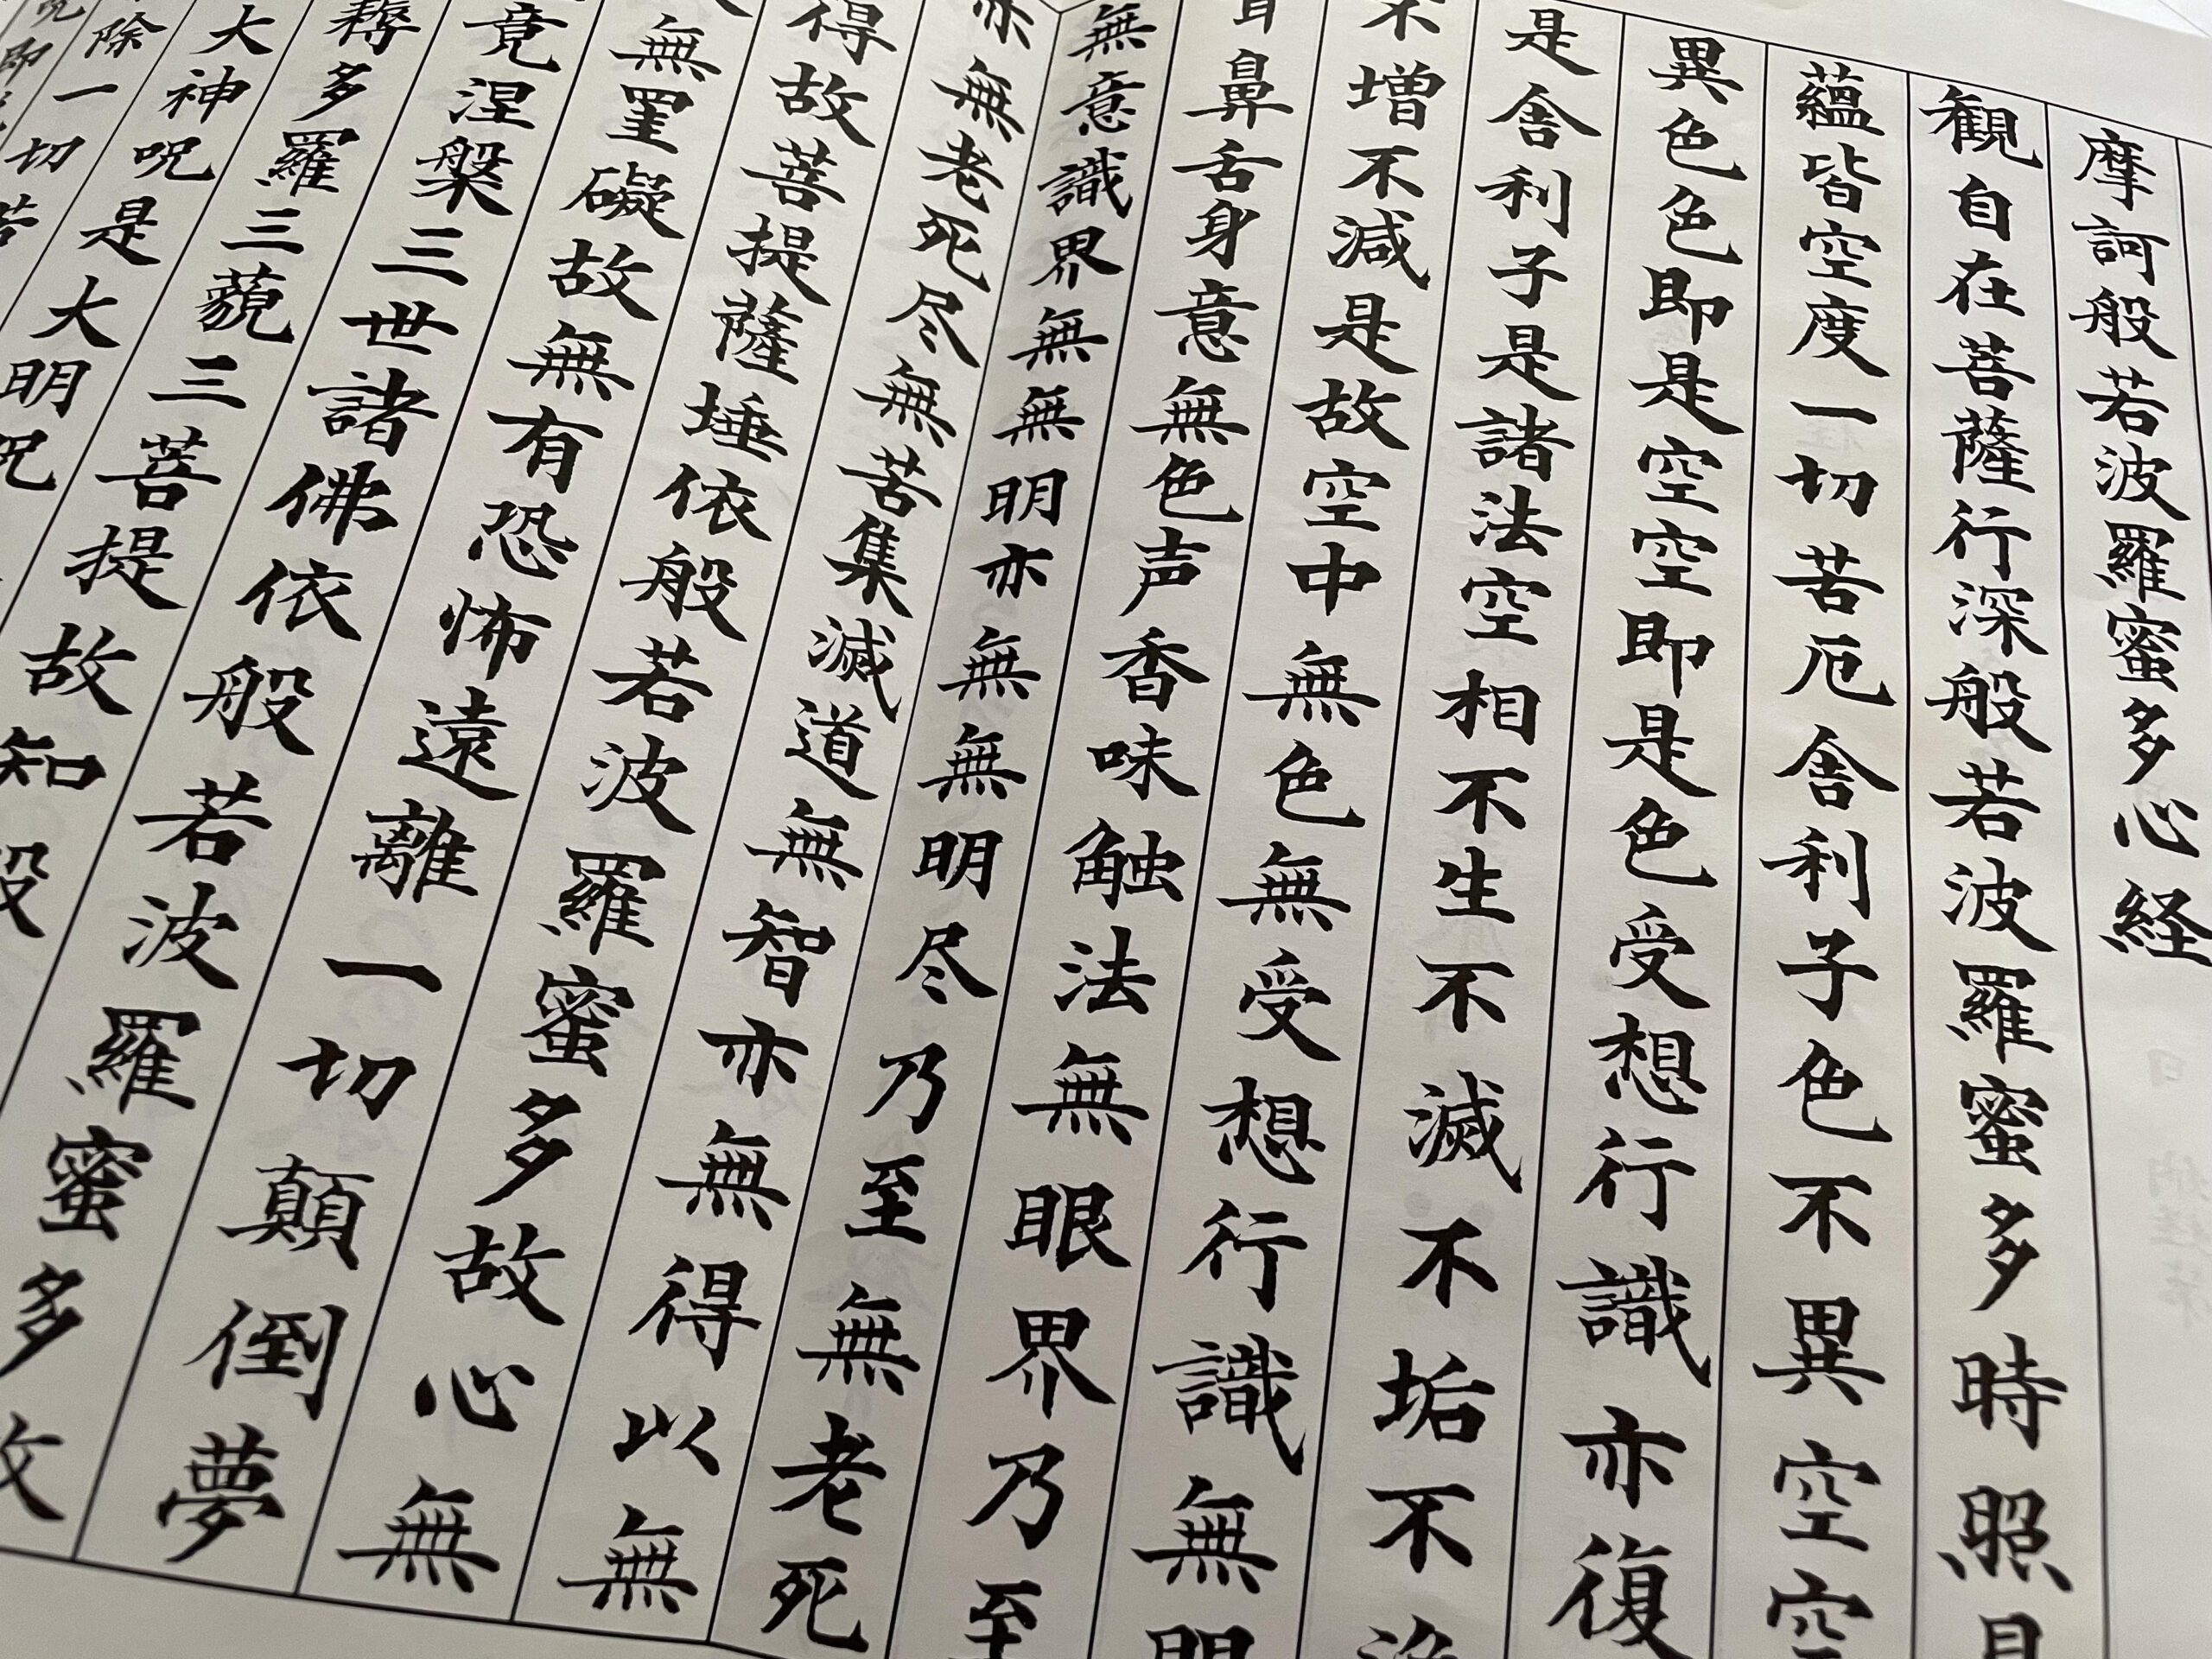 摩訶般若波羅蜜多心経
観自在菩薩行深般若波羅蜜多時照見
蘊皆空度一切苦厄舎利子色不異空空
異色色即是空空即是色受想行識亦復
是舎利子是諸法空相不生不滅不垢不
不増不減是故空中無色無受想行識無
耳鼻舌身意無色声香味触法無眼界乃至
無意識界無無明亦無無明尽乃至無老死
亦無老死尽無苦集滅道無智亦無得以無
得故菩提薩埵依般若波羅蜜多故心無
無罣礙故無有恐怖遠離一切顛倒夢
竟涅槃三世諸佛依般若波羅蜜多故
耨多羅三藐三菩提故知般
大神呪是大明呪
除一切苦
呪即